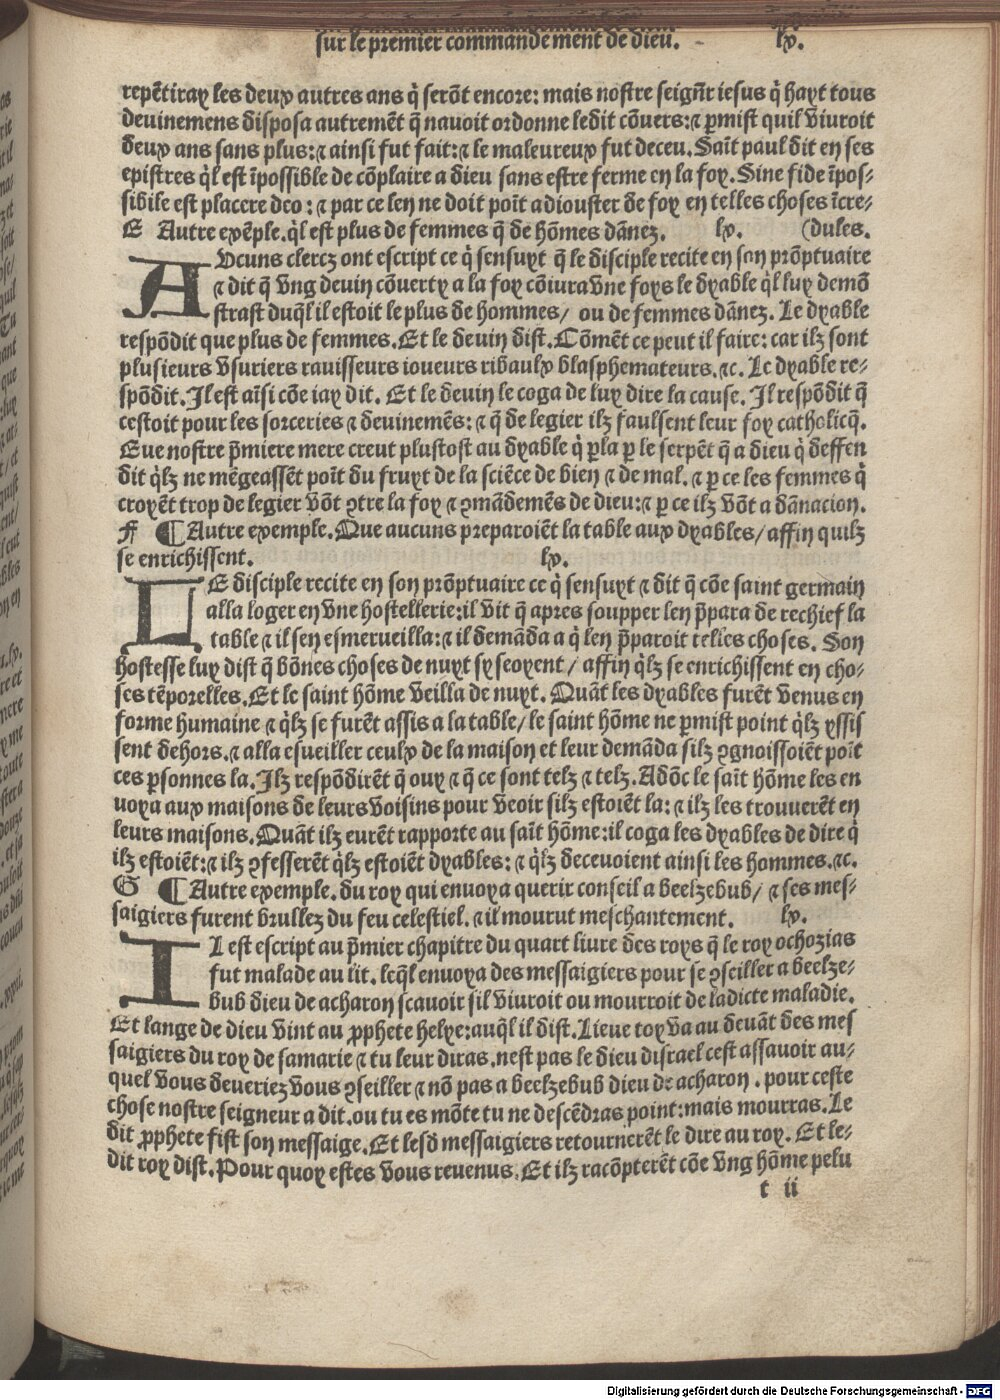 sur le premier commande ment de dieu. lx.
repẽtiray les deux autres ans q̃ serõt encore: mais nostre seigñr iesus q̃ hayt tous
deuinemens disposa autremẽt q̃ nauoit ordonne ledit cõuers: ⁊ ꝑmist quil viuroit
deux ans sans plus: ⁊ ainsi fut fait: ⁊ le maleureux fut deceu. Saĩt paul dit en ses
epistres q̃l est ĩpossible de cõplaire a dieu sans estre ferme en la foy. Sine fide ĩpos-
sibile est placere deo: ⁊ par ce len ne doit poĩt adiouster de foy en telles choses ĩcre-
E Autre exẽple. q̃l est plus de femmes q̃ de hõmes dãnez. lx. (dules.
AVcuns clercz ont escript ce q̃ sensuyt q̃ le disciple recite en son prõptuaire
⁊ dit q̃ vng deuin cõuerty a la foy cõiura vne foys le dyable q̃l luy demõ
strast duq̃l il estoit le plus de hommes/ ou de femmes dãnez. Le dyable
respõdit que plus de femmes. Et le deuin dist. Cõmẽt ce peut il faire: car ilz sont
plusieurs vsuriers rauisseurs ioueurs ribaulx blasphemateurs. ⁊c. Le dyable re-
spõdit. Il est aĩsi cõe iay dit. Et le deuin le coga de luy dire la cause. Il respõdit q̃
cestoit pour les sorceries ⁊ deuinemẽs: ⁊ q̃ de legier ilz faulsent leur foy catholicq̃.
Eue nostre p̃miere mere creut plustost au dyable q̃ ꝑla ꝑ le serpẽt q̃ a dieu q̃ deffen
dit q̃lz ne mẽgeassẽt poĩt du fruyt de la sciẽce de bien ⁊ de mal. ⁊ ꝑ ce les femmes q̃
croyẽt trop de legier võt ꝯtre la foy ⁊ ꝯmãdemẽs de dieu: ⁊ ꝑ ce ilz võt a dãnacion.
F ¶ Autre exemple. Que aucuns preparoiẽt la table aux dyables/ affin quilz
se enrichissent. lx.
LE disciple recite en son prõptuaire ce q̃ sensuyt ⁊ dit q̃ cõe saint germain
alla loger en vne hostellerie: il vit q̃ apres soupper len p̃para de rechief la
table ⁊ il sen esmerueilla: ⁊ il demãda a q̃ len p̃paroit telles choses. Son
hostesse luy dist q̃ bõnes choses de nuyt sy seoyent/ affin q̃lz se enrichissent en cho-
ses tẽporelles. Et le saint hõme veilla de nuyt. Quãt les dyables furẽt venus en
forme humaine ⁊ q̃lz se furẽt assis a la table/ le saint hõme ne ꝑmist point q̃lz yssis
sent dehors. ⁊ alla esueiller ceulx de la maison et leur demãda silz ꝯgnoissoiẽt poĩt
ces ꝑsonnes la. Ilz respõdirẽt q̃ ouy ⁊ q̃ ce sont telz ⁊ telz. Adõc le saĩt hõme les en
uoya aux maisons de leurs voisins pour veoir silz estoiẽt la: ⁊ ilz les trouuerẽt en
leurs maisons. Quãt ilz eurẽt rapporte au saĩt hõme: il coga les dyables de dire q̃
ilz estoiẽt: ⁊ ilz ꝯfesserẽt q̃lz estoiẽt dyables: ⁊ q̃lz deceuoient ainsi les hommes. ⁊c.
G ¶ Autre exemple. du roy qui enuoya querir conseil a beelzebub/ ⁊ ses mes-
saigiers furent brullez du feu celestiel. ⁊ il mourut meschantement. lx.
IL est escript au p̃mier chapitre du quart liure des roys q̃ le roy ochozias
fut malade au lit. leq̃l enuoya des messaigiers pour se ꝯseiller a beelze-
bub dieu de acharon scauoir sil viuroit ou mourroit de ladicte maladie.
Et lange de dieu vint au ꝓphete helye: auq̃l il dist. Lieue toy va au deuãt des mes
saigiers du roy de samarie ⁊ tu leur diras. nest pas le dieu disrael cest assauoir au-
quel vous deueriez vous ꝯseiller ⁊ nõ pas a beelzebub dieu de acharon. pour ceste
chose nostre seigneur a dit. ou tu es mõte tu ne descẽdras point: mais mourras. Le
dit ꝓphete fist son messaige. Et lesd̃ messaigiers retournerẽt le dire au roy. Et le-
dit roy dist. Pour quoy estes vous reuenus. Et ilz racõpterẽt cõe vng hõme pelu
t ii
Digitalisierung gefördert durch die Deutsche Forschungsgemeinschaft - DFG